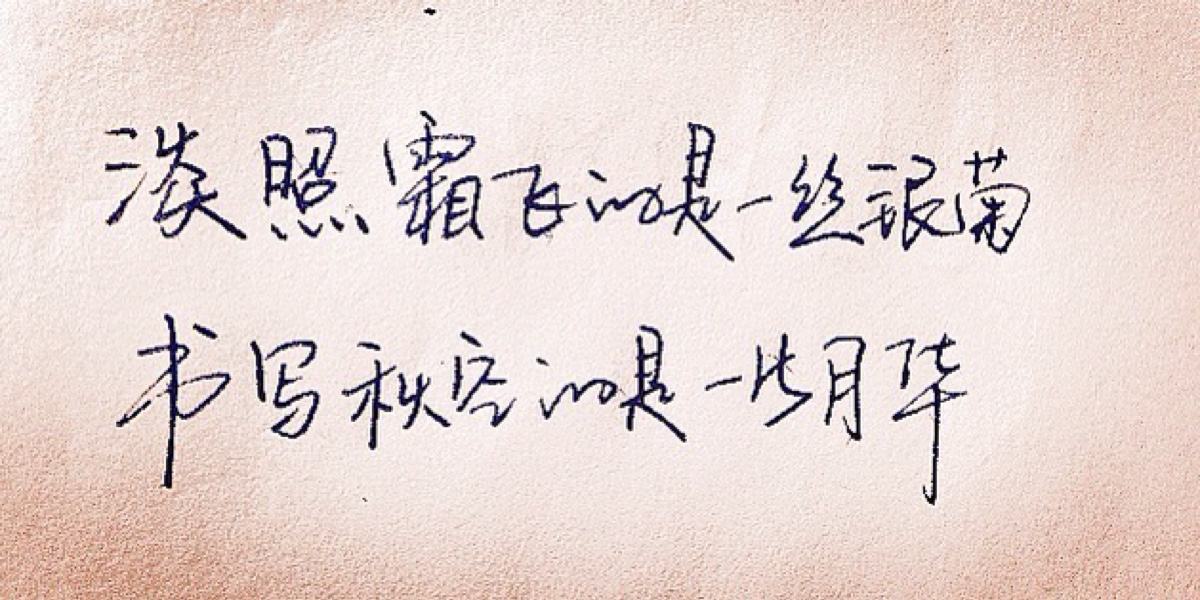 淡照霜飞的是一丝银菊
书写秋容的是一些月华